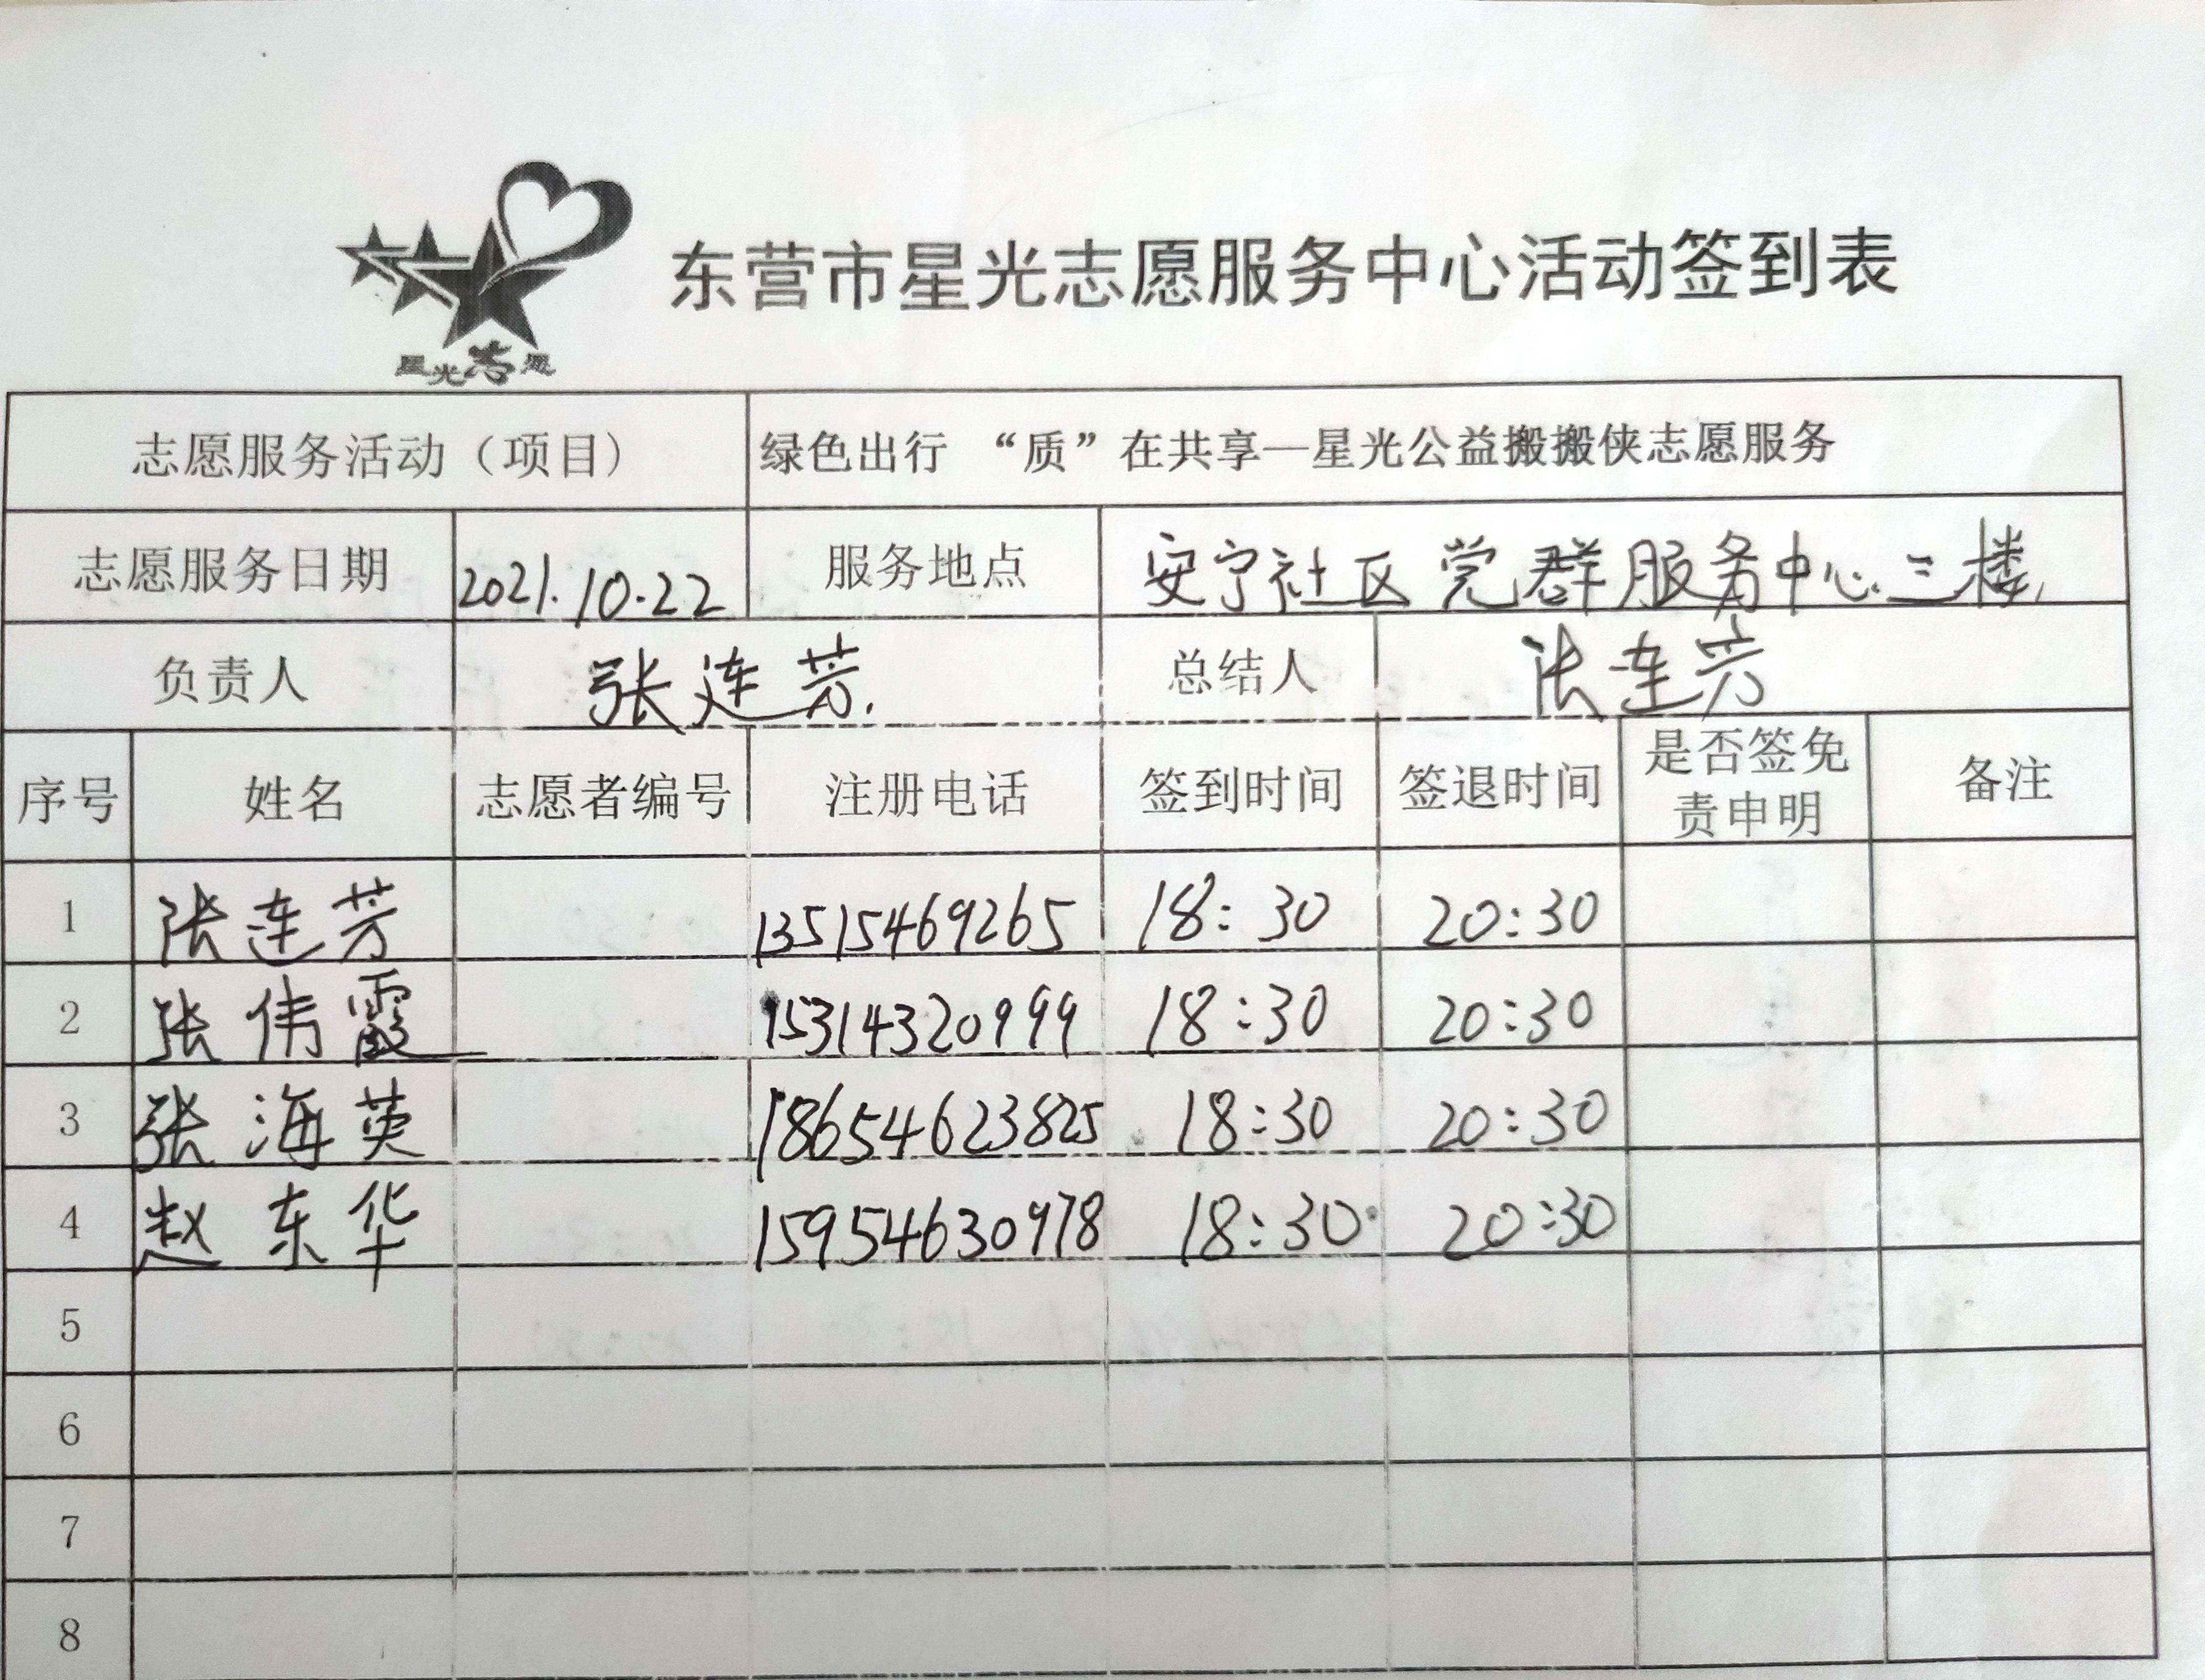 星光志愿
东营市星光志愿服务中心活动签到表
志愿服务活动（项目） 绿色出行 “质”在共享—星光公益搬搬侠志愿服务
志愿服务日期 2021.10.22 服务地点 安宁社区党群服务中心三楼
负责人 张连芳. 总结人 张连芳
序号 姓名 志愿者编号 注册电话 签到时间 签退时间 是否签免责申明 备注
1 张连芳 13515469265 18:30 20:30
2 张伟霞 15314320999 18:30 20:30
3 张海英 18654623825 18:30 20:30
4 赵东华 15954630978 18:30 20:30
5
6
7
8